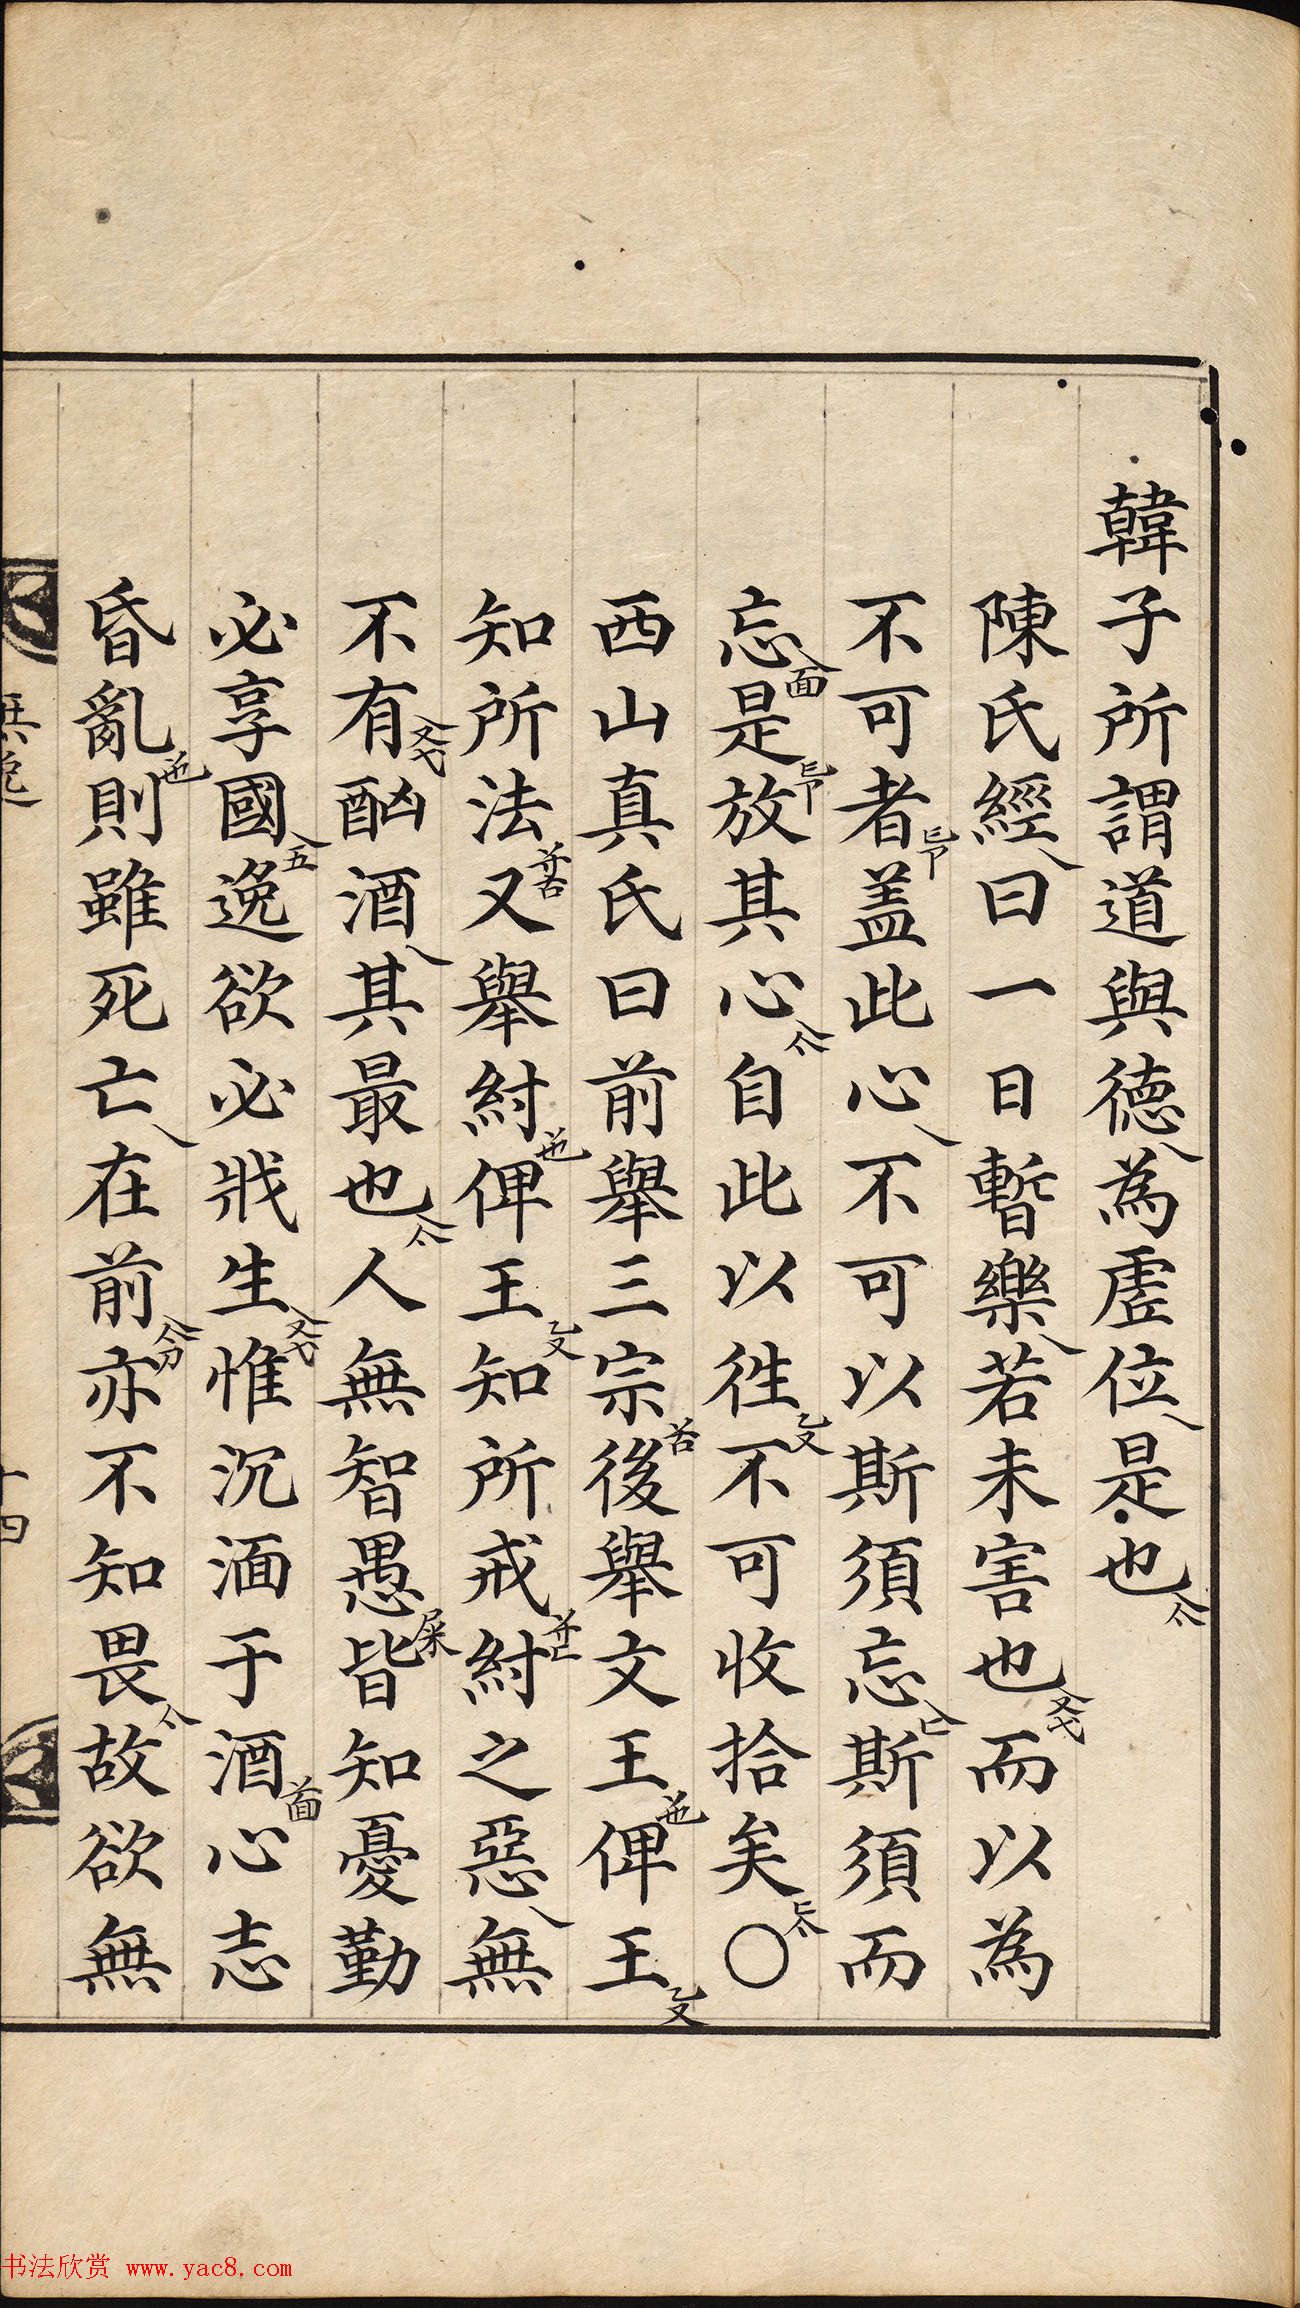 韓子所謂道與德為虛位是也
陳氏經曰一日暫樂若未害也而以為
不可者盖此心不可以斯須忘斯須而
忘是放其心自此以徃不可收拾矣〇
西山真氏曰前舉三宗後舉文王俾王
知所法又舉紂俾王知所戒紂之惡無
不有酗酒其最也人無智愚皆知憂勤
必享國逸欲必戕生惟沉湎于酒心志
昏亂則雖死亡在前亦不知畏故欲無
無逸
十四
书法欣赏 www.yac8.com